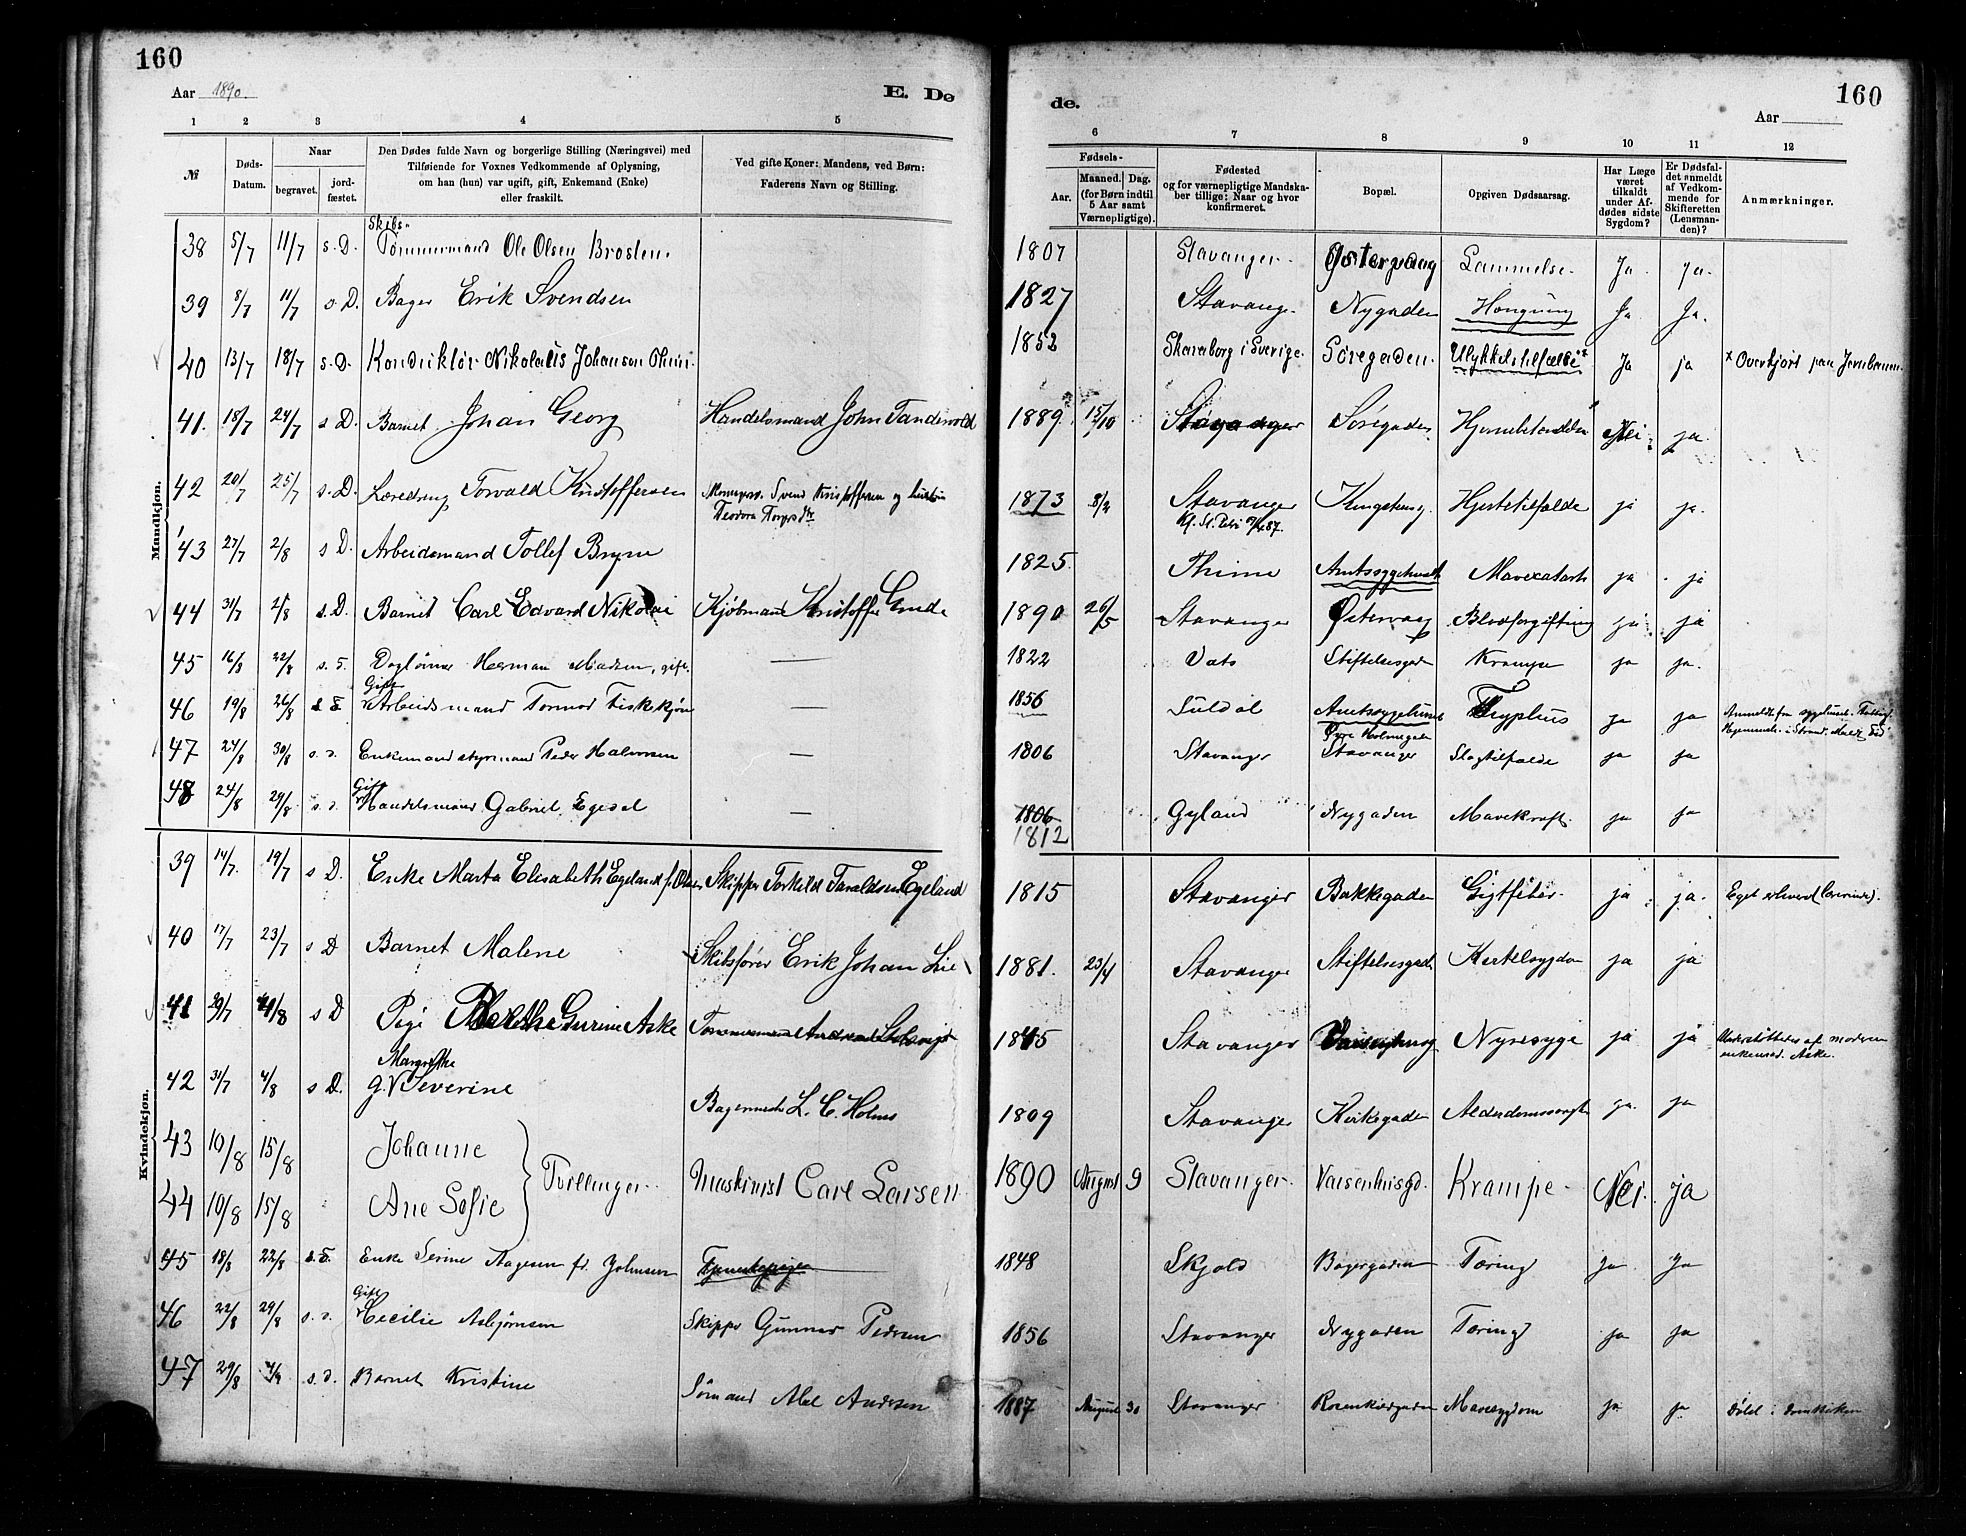 160
Aar 1890.
E. Dø
1 2 3 4 5
№
Døds-Datum.
Naar
begravet.
jord-fæstet.
Den Dødes fulde Navn og borgerlige Stilling (Næringsvei) med
Tilføiende for Voxnes Vedkommende af Oplysning,
om han (hun) var ugift, gift, Enkemand (Enke)
eller fraskilt.
Ved gifte Koner: Mandens, ved Børn:
Faderens Navn og Stilling.
Mandkjøn.
Skibs-
38 5/7 11/7 s. D. Tømmermand Ole Olsen Brosten.
39 8/7 11/7 s. D. Bager Erik Svendsen
40 13/7 18/7 s. D. Konduktør Nikolaus Johanson
41. 18/7 24/7 s D. Barnet Johan Georg Handelsmand John Tandervold
42 20/7 25/7 s. D. Læredreng Torvald Kristoffersen Svend Kristoffersen og hustru
Teodora
43 27/7 2/8 s D. Arbeidsmand Tollef Bryne
44 31/7 2/8 s. D. Barnet Carl Edvard Nikolai Kjøbmand Kristoffer Grude
45 16/8 22/8 s. S. Daglønner Herman Madsen, gift. —
Gift
46 19/8 26/8 s. S. Arbeidsmand Tormod Fiskekjøn —
47 24/8 30/8 s. s. Enkemand styrmand Peder Halvorsen —
Gift
48 24/8 29/8 s. s. Handelsmand Gabriel Egedal —
Kvindekjøn.
39 14/7. 19/7 s D. Enke Marta Elisabeth Egeland f. Olsen Skipper Torkild Taraldsen Egeland
40 17/7 23/7 s D Barnet Malene Skibsfører Erik Johan Lie
41 29/7 4/8 s D Pige Berthe Gurine Aske
Margrethe
42 31/7 4/8 s D. g. Severine Bagermester L. C. Holms
43 10/8 15/8 Johanne
Tvillinger. Maskinist Carl Larsen
44 10/8 15/8 Ane Sofie
45 18/8 22/8 s. S. Enke Serine Aagesen fd. Johnsen
Gift
46 22/8 29/8 s. s. Cecilie Asbjørnsen Skipper Gunnar Pedersen
47 29/8 4/9 s. s. Barnet Kristine Sømand Abel Andersen
160
de.
Aar
6 7 8 9 10 11 12
Fødsels-
Aar.
Maaned.
Dag.
(for Børn indtil
5 Aar samt
Værnepligtige).
Fødested
og for værnepligtige Mandska-
ber tillige: Naar og hvor
konfirmeret.
Bopæl.
Opgiven Dødsaarsag.
Har Læge
været
tilkaldt
under Af-
dødes sidste
Sygdom?
Er Dødsfal-
det anmeldt
af Vedkom-
mende for
Skifteretten
(Lensman-
den)?
Anmærkninger.
1807 Stavanger. Østervaag Lammelse. Ja ja.
1827 Stavanger Nygaden Hongning Ja. Ja.
1852 Skaraborg i Sverige. Søregaden. Ulykkestilfælde x Ja ja x Overkjørt paa Jernbanen
1889. 15/10 Stavanger Søregaden Hjernebetændelse Nei ja.
1873 8/2 Stavanger Kongsteng. Hjertetilfælde ja ja.
1825. Thime Amtssygehuset Mavekatarh ja ja
1890 26/5 Stavanger Østervaag Blodforgiftning ja ja
1822 Vats Stiftelsesgaden Krampe ja ja.
1856 Suldal Amtssygehuset Typhus ja ja Anmeldt fra sygehuset.
Øvre Holmegade
1806 Stavanger Stavanger Slagtilfælde ja ja
1806 Gyland Nygaden Mavekræft. ja ja
1812
1815 Stavanger Bakkegaden Gigtfeber. ja ja. Eget erhverv
1881. 23/4 Stavanger Stiftelsesgade Kirtelsygdom ja ja
1845 Stavanger Nyresyge ja ja Understøttedes af moderen
enkemad. Aske.
1809 Stavanger Kirkegaden Alderdomssvaghed ja. ja
1890 August 9 Stavanger. Vaisenhusgd. Krampe. Nei. ja
1848 Skjold Bagergaden Tæring ja ja
1856 Stavanger Nygaden Tæring ja ja
1887 August 30 Stavanger Rosenkildegaden Mavesygdom ja ja Døbt i Domkirken